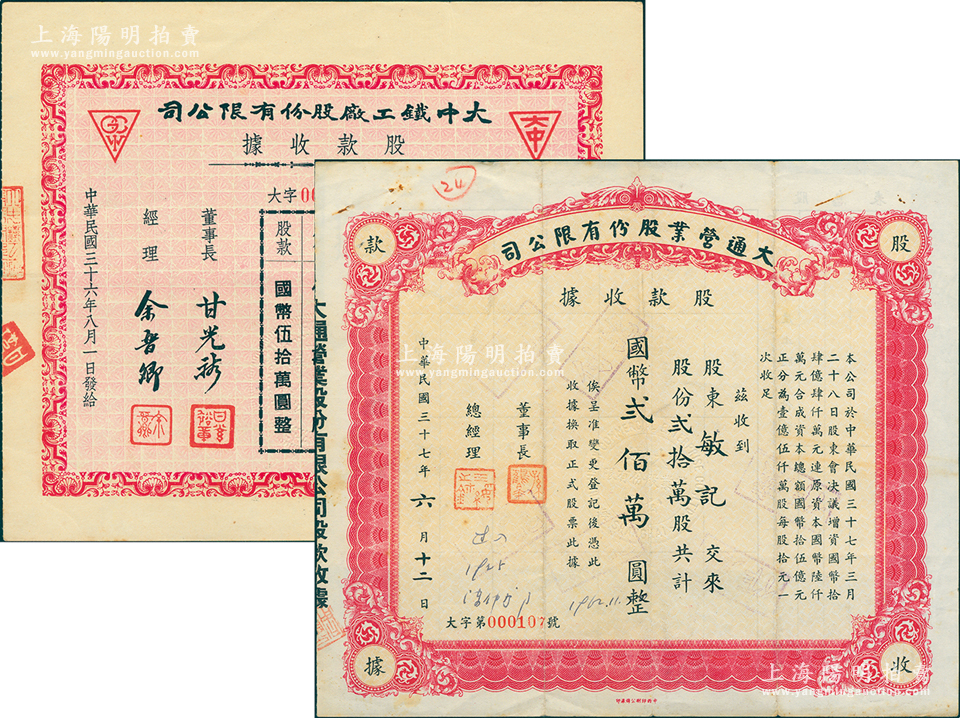 上海陽明拍賣
www.yangmingauction.com
大中鐵工廠股份有限公司
股款收據
大中
大字00
股款
國幣伍拾萬圓整
董事長
甘光琇
經理
余召卿
中華民國三十六年八月一日發給
24
大通營業股份有限公司
股款收據
股
款
收
據
本公司於中華民國三十七年三月
二十八日股東會決議增資國幣拾
肆億肆仟萬元連原資本國幣陸仟
萬元合成資本總額國幣拾伍億元
正分為壹億伍仟萬股每股拾元一
次收足
茲收到
股東敏記交來
股份弍拾萬股共計
國幣弍佰萬圓整
俟呈准變更登記後憑此
收據換取正式股票此據
董事長
總經理
中華民國三十七年六月十二日
1962.11.
大字第000107號
大通營業股份有限公司股款收據
上海陽明拍賣
www.yangmingauction.com
上海陽明拍賣
www.yangmingauction.com